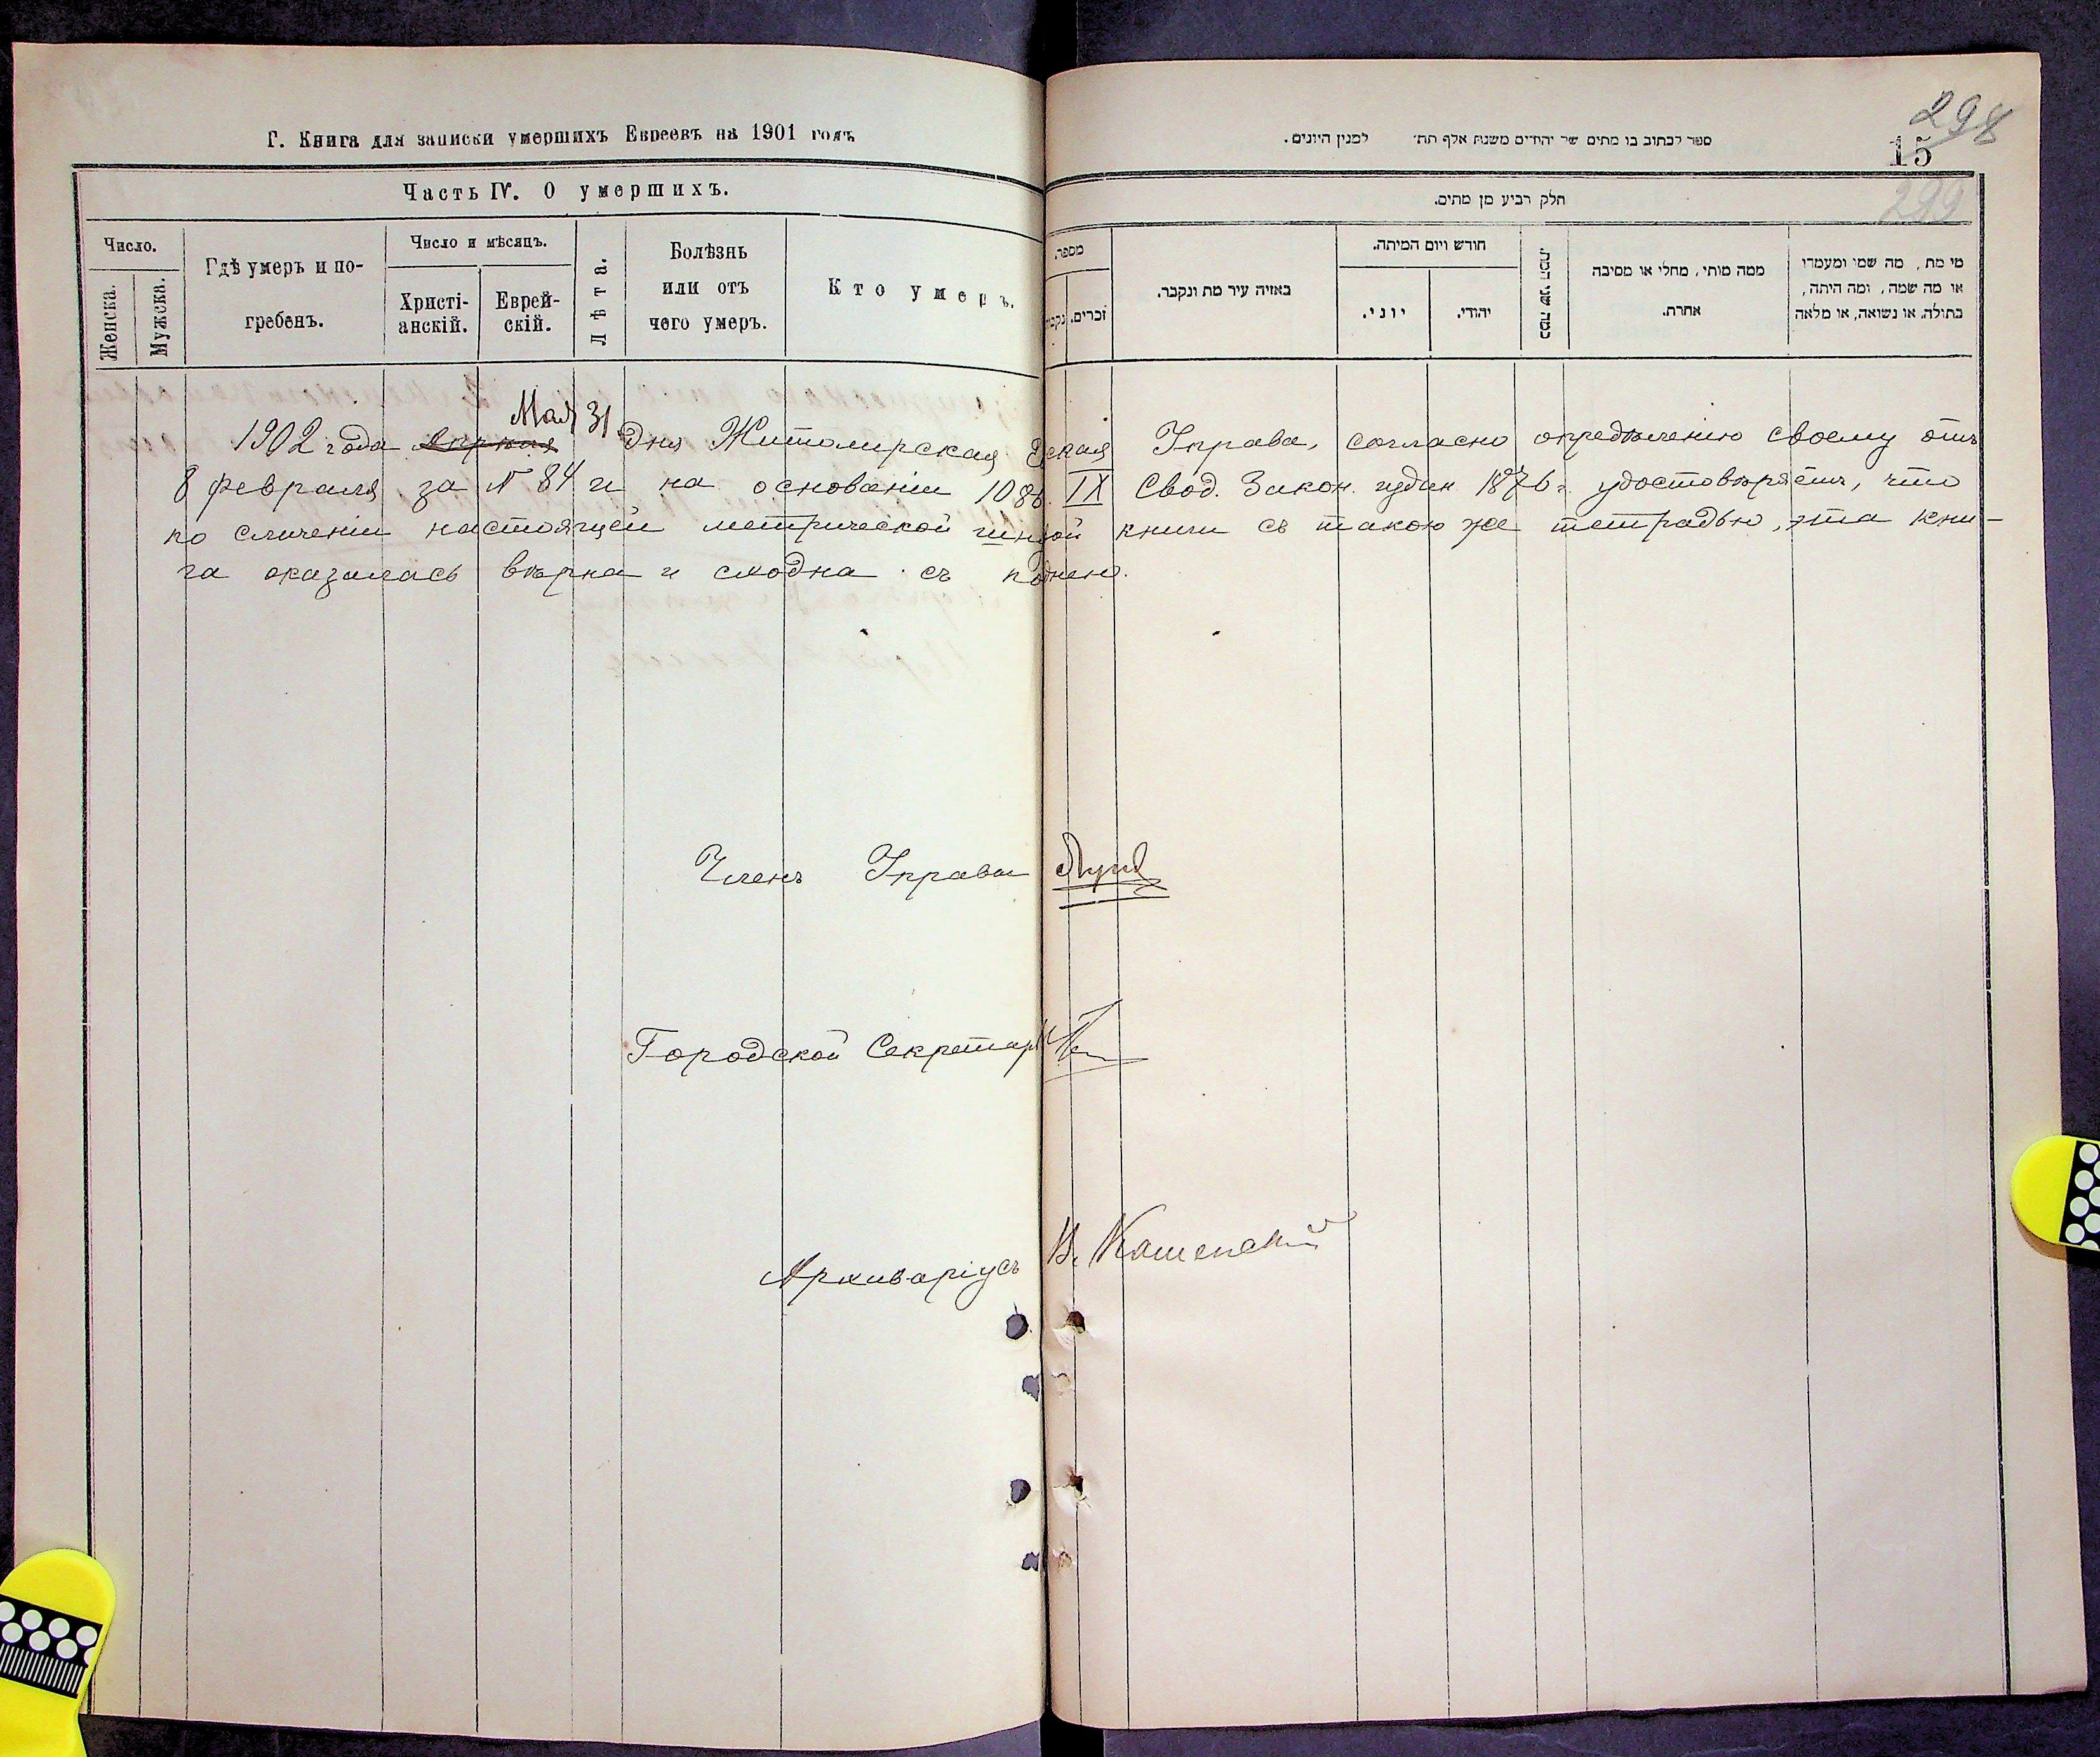 Г. Книга для записки умершихъ Евреевъ на 1901 годъ
Часть IV. О умершихъ.
Число.
Женска.
Мужска.
Гдѣ умеръ и по-
гребенъ.
Число и мѣсяцъ.
Христі-
анскій.
Еврей-
скій.
Лѣта.
Болѣзнь
или отъ
чего умеръ.
Кто умеръ.
298
15
299
ספר לכתוב בו מתים של יהודים משנת אלף תת׳ למנין היונים.
חלק רביע מן מתים.
מספר.
נקבו
זכרים.
באיזה עיר מת ונקבר.
חורש ויום המיתה.
יוני.
יהודי.
כמה שני המת.
ממה מותי, מחלי או מסיבה
אחרת.
מי מת, מה שמו ומעמדו
או מה שמה, ומה היתה,
בתולה, או נשואה, או מלאה
Мая 31
1902 года Апрѣля дня Житомирская Управа, согласно опредѣленію своему отъ
8 февраля за № 84 и на основаніи 1086 IX Свод. Закон. издан 1876 г. удостовѣряетъ, что
по сличеніи настоящей метрической книги съ такою же тетрадью, эта кни-
га оказалась вѣрна и сходна съ
Членъ Управы
Городской Секретарь
Архиваріусъ В.